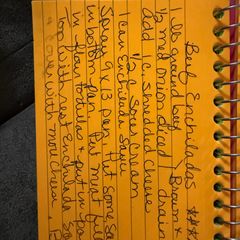 Beef Enchiladas ***
1 lb ground beef } Brown &
1/2 med onion diced } drain
add 1 c. shredded cheese
1/2 c sour cream
1 can enchilada sauce
Spray 9x13 pan. Put some sauce
in bottom pan. Put meat
in flour tortillas & put in pan
Top with rest enchilada
Cover with more cheese,